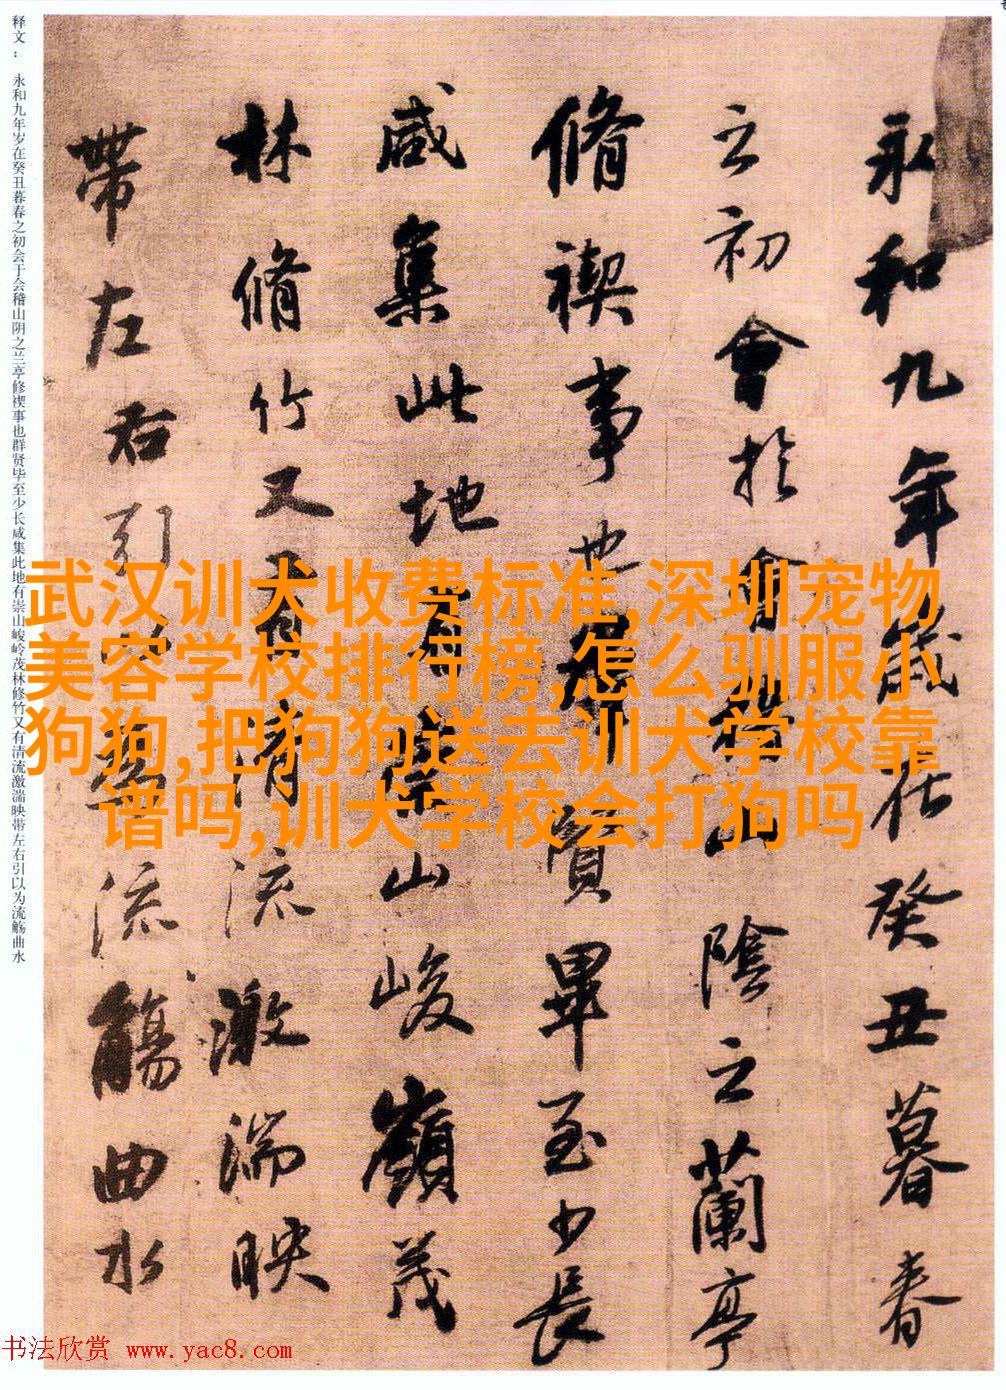 永和九年歲在癸丑暮春
之初會於會稽山陰之蘭亭
脩禊事也羣賢畢至少長
咸集此地有崇山峻嶺茂
林脩竹又有清流激湍映
帶左右引以為流觴曲水
释文： 永和九年岁在癸丑暮春之初会于会稽山阴之兰亭修禊事也群贤毕至少长咸集此地有崇山峻岭茂林修竹又有清流激湍映带左右引以为流觞曲水
武汉训犬收费标准,深圳宠物
美容学校排行榜,怎么驯服小
狗狗,把狗狗送去训犬学校靠
谱吗,训犬学校会打狗吗
书法欣赏 www.yac8.com